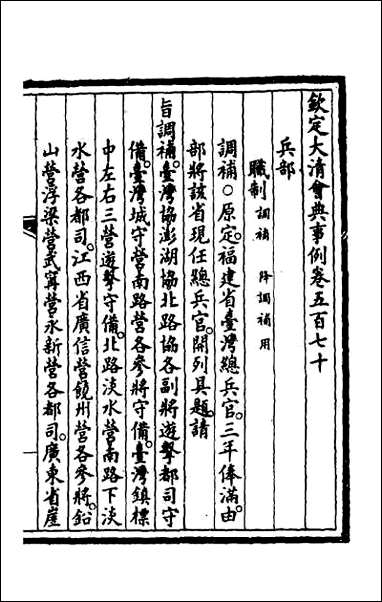 欽定大清會典事例卷五百七十
兵部
職制調補 降調補用
調補○原定。福建省臺灣總兵官。三年俸滿。由
部將該省現任總兵官。開列具題。請
旨調補。臺灣協澎湖協北路協各副將遊擊都司守
備。臺灣城守營南路營各參將守備。臺灣鎮標
中左右三營遊擊守備。北路淡水營南路下淡
水營各都司。江西省廣信營饒州營各參將。鉛
山營浮梁營武寧營永新營各都司。廣東省崖